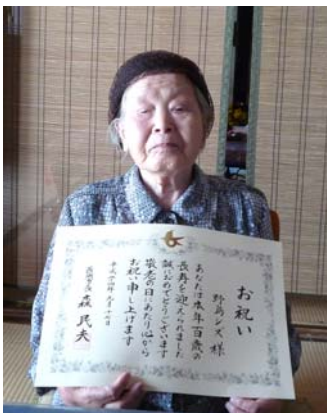 お祝い
野島シズ 様
あなたは本年百歳の
長寿を迎えられました
誠におめでとうございます
敬老の日にあたり心から
お祝い申し上げます
平成二十四年九月十七日
長岡市長 森 民夫